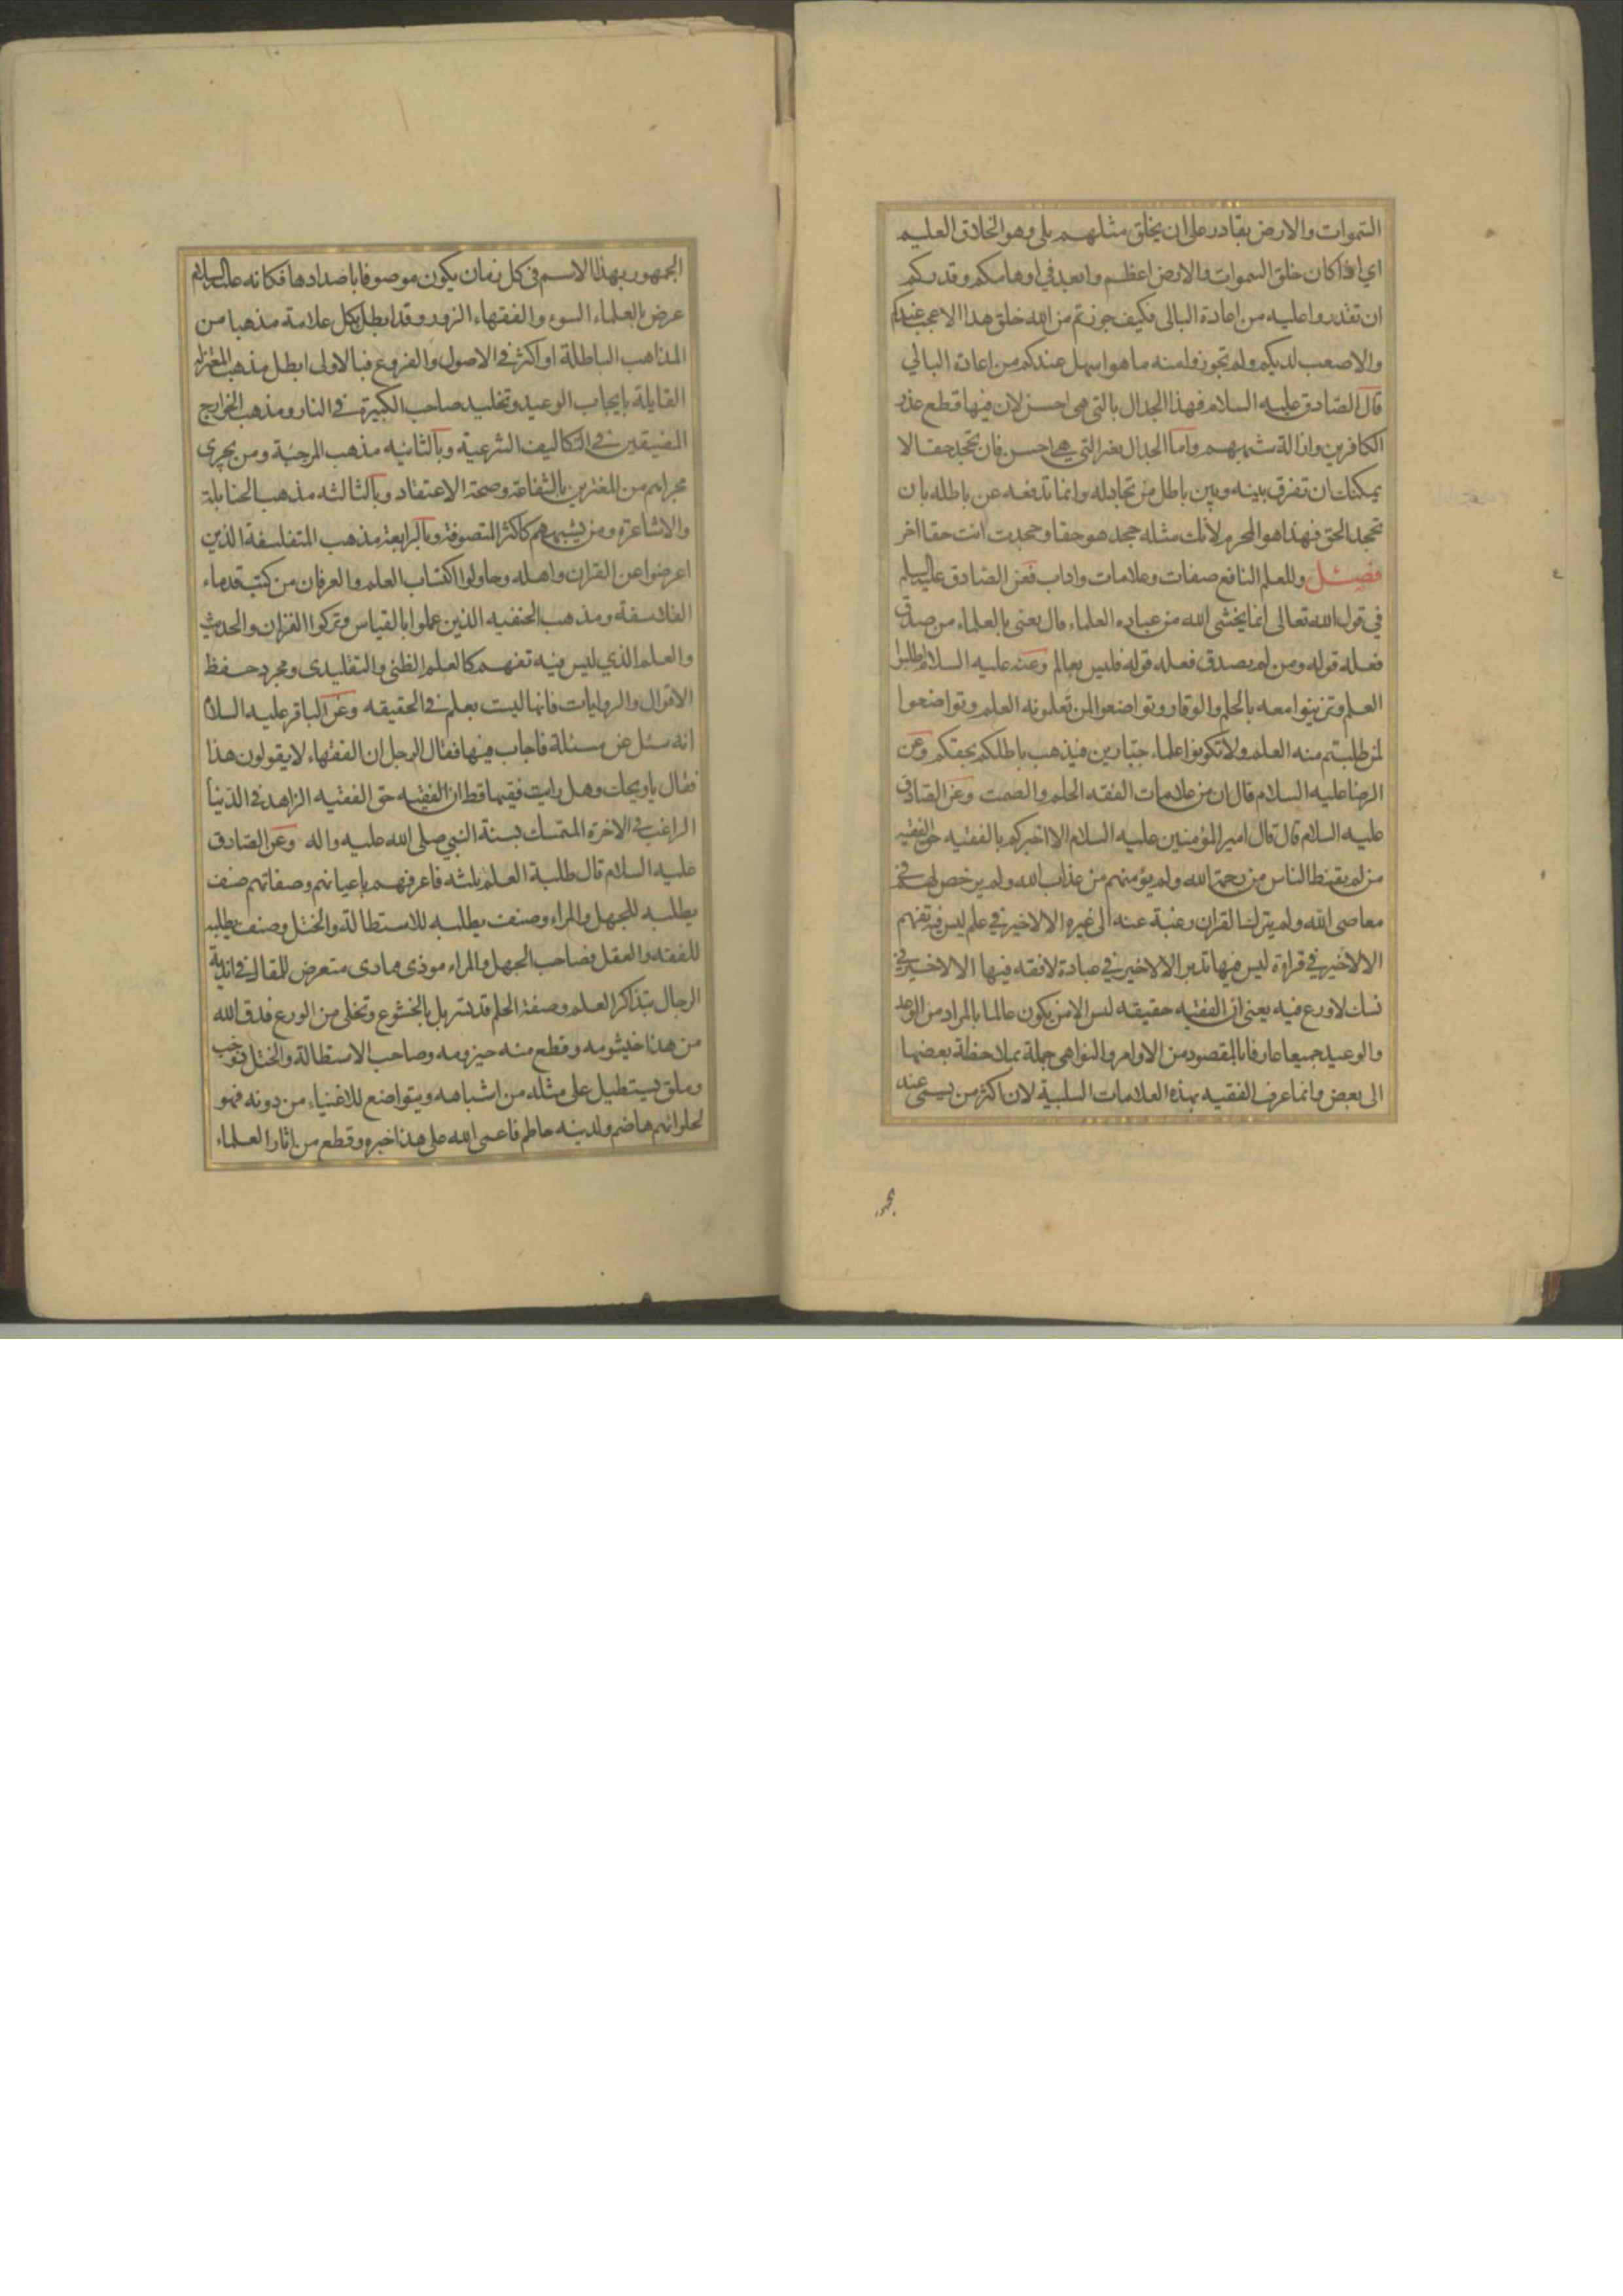 السموات والارض بقادر على ان يخلق مثلهم بلى وهو الخلاق العليم
اي اذا كان خلق السموات والارض اعظم وابعد في اوهامكم وقدركم
ان تقدروا عليه من اعادة البالى فكيف جوزتم من الله خلق هذا الاعجب عندكم
والاصعب لديكم ولم تجوزوا منه ما هو اسهل عندكم من اعادة البالي
قال الصادق عليه السلام فهذا الجدال بالتي هى احسن لان فيها قطع عذر
الكافرين وازالة شبههم واما الجدال بغير التي هي احسن فان تجحد حقا لا
يمكنك ان تفرق بينه وبين باطل من تجادله وانما تدفعه عن باطله بان
تجحد الحق فهذا هو المحرم لانك مثله جحد هو حقا وجحدت انت حقا اخر
فصل وللعلم النافع صفات وعلامات واداب فعن الصادق عليه السلم
في قول الله تعالى انما يخشى الله من عباده العلماء قال يعنى بالعلماء من صدق
فعله قوله ومن لم يصدق فعله قوله فليس بعالم وعنه عليه السلام اطلبوا
العلم وتزينوا معه بالحلم والوقار وتواضعوا لمن تعلمونه العلم وتواضعوا
لمن طلبتم منه العلم ولا تكونوا علماء جبارين فيذهب باطلكم بحقكم وعن
الرضا عليه السلام قال ان من علامات الفقه الحلم والصمت وعن الصادق
عليه السلام قال قال امير المؤمنين عليه السلام الا اخبركم بالفقيه حق الفقيه
من لم يقنط الناس من رحمة الله ولم يؤمنهم من عذاب الله ولم يرخص لهم في
معاصى الله ولم يترك القران رغبة عنه الى غيره الا لا خير في علم ليس فيه تفهم
الا لا خير في قراءة ليس فيها تدبر الا لا خير في عبادة لا فقه فيها الا لا خير في
نسك لا ورع فيه يعنى ان الفقيه حقيقه ليس الا من يكون عالما بالمراد من الوعد
والوعيد جميعا عارفا بالمقصود من الاوامر والنواهى جملة بملاحظة بعضها
الى بعض وانما عرف الفقيه بهذه العلامات السلبية لان اكثر من يسمى عند
الجمهور بهذا الاسم في كل زمان يكون موصوفا باضدادها فكانه عليه السلام
عرض بالعلماء السوء والفقهاء الزور وقد ابطل بكل علامة مذهبا من
المذاهب الباطلة او اكثر في الاصول والفروع فبالاولى ابطل مذهب المعتزله
القايلة بايجاب الوعيد وتخليد صاحب الكبيرة في النار ومذهب الخوارج
المضيقين في التكاليف الشرعية وبالثانيه مذهب المرجئة ومن يجرى
مجراهم من المغترين بالشفاعة وصحة الاعتقاد وبالثالثه مذهب الحنابلة
والاشاعرة ومن يشبههم كاكثر المتصوفة وبالرابعة مذهب المتفلسفة الذين
اعرضوا عن القران واهله وحاولوا اكتساب العلم والعرفان من كتب قدماء
الفلاسفة ومذهب الحنفيه الذين عملوا بالقياس وتركوا القران والحديث
والعلم الذي ليس فيه تفهم كالعلم الظنى والتقليدى ومجرد حفظ
الاقوال والروايات فانها ليست بعلم في الحقيقه وعن الباقر عليه السلام
انه سئل عن مسئلة فاجاب فيها فقال الرجل ان الفقهاء لا يقولون هذا
فقال يا ويحك وهل رايت فقيها قط ان الفقيه حق الفقيه الزاهد في الدنيا
الراغب في الاخرة المتمسك بسنة النبي صلى الله عليه واله وعن الصادق
عليه السلام قال طلبة العلم ثلثه فاعرفهم باعيانهم وصفاتهم صنف
يطلبه للجهل والمراء وصنف يطلبه للاستطالة والختل وصنف يطلبه
للفقه والعقل فصاحب الجهل والمراء موذى ممارى متعرض للمقال في اندية
الرجال بتذاكر العلم وصفة الحلم قد تسربل بالخشوع وتخلى من الورع فدق الله
من هذا خيشومه وقطع منه حيزومه وصاحب الاستطالة والختل ذو خب
وملق يستطيل على مثله من اشباهه ويتواضع للاغنياء من دونه فهو
لحلوائهم هاضم ولدينه حاطم فاعمى الله على هذا خبره وقطع من اثار العلماء